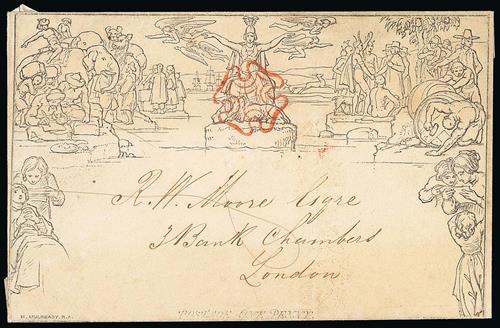 R. W. Moore Esqre
3 Bank Chambers
London
W. MULREADY, R.A.
POSTAGE ONE PENNY.